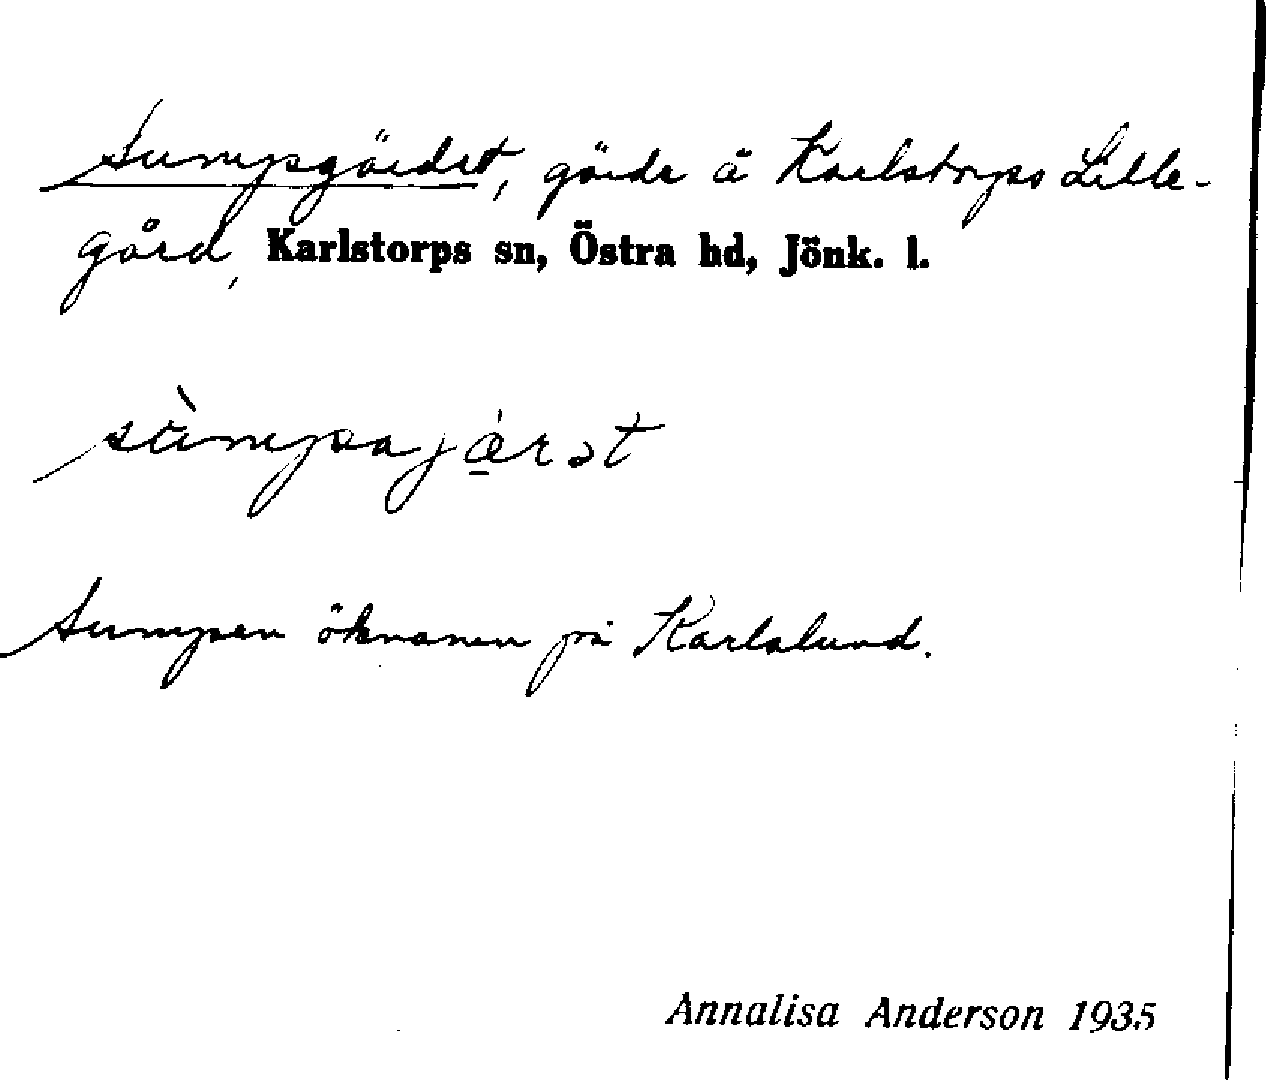 Sumpsgärdet, gärde å Karlstorps Lille-
gård, Karlstorps sn, Östra hd, Jönk. l.
sùmpsajæ̀rət
Sumpen öknamn på Karlslund.
Annalisa Anderson 1935